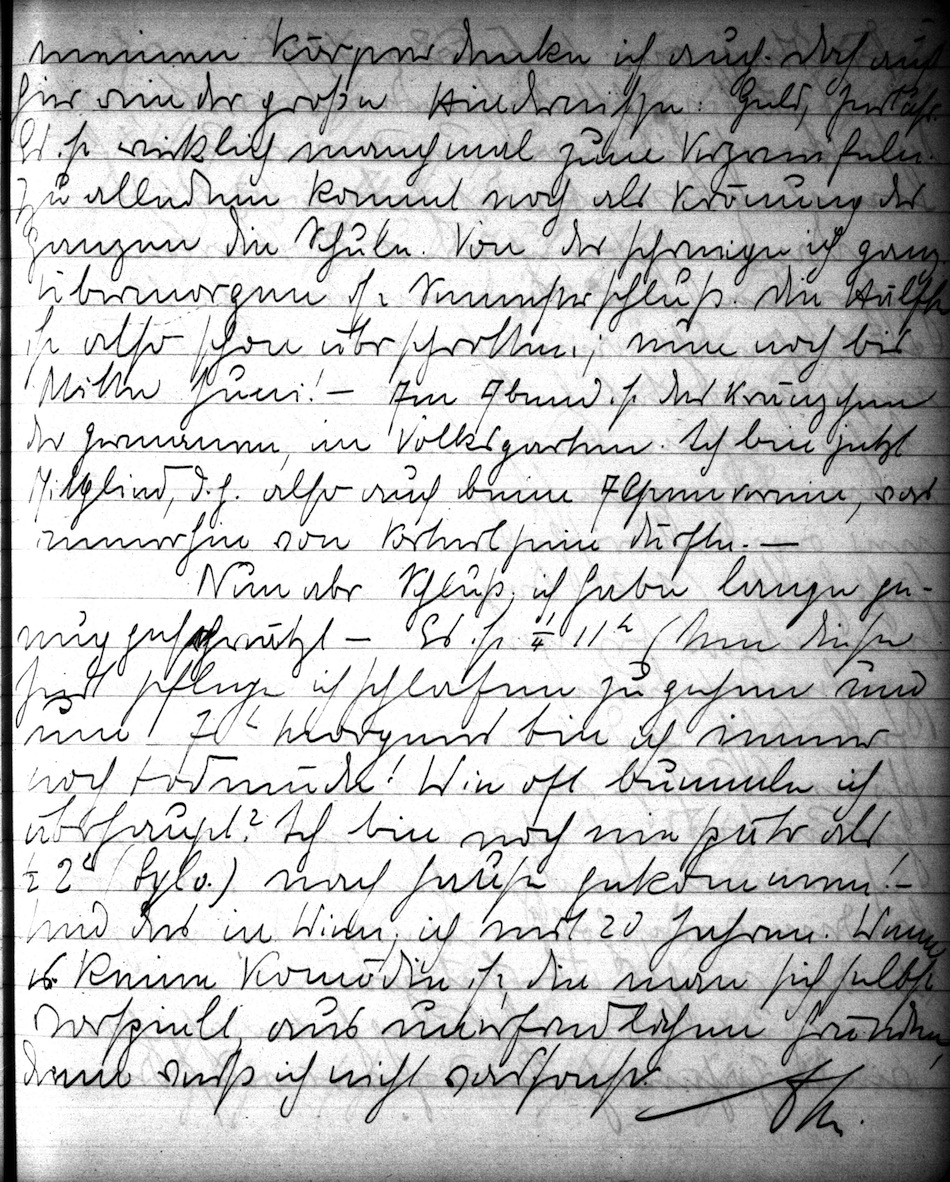 meinen Körper denke ich auch. doch auch
hier wieder große Hindernisse: Geld,
Es ist wirklich manchmal zum Verzweifeln.
Zu alledem kommt noch als Krönung des
ganzen die Schule. Von der schweige ich ganz.
Übermorgen ist Semesterschluß. die Hälfte
ist also schon überschritten; nun noch bis
Mitte Juni! — Am Abend ist das Kränzchen
der Germanen, im Volksgarten. Ich bin jetzt
Mitglied, d. h. also auch beim Alpenverein, was
immerhin von Vorteil sein dürfte. —
Nun aber Schluß, ich habe lange ge-
nug geschwätzt — Es ist ¼ 11 h (Um diese
Zeit pflege ich schlafen zu gehen und
um 7 h Morgens bin ich immer
noch todmüde! Wie oft bummle ich
überhaupt? Ich bin noch nie später als
½ 2 h (Sylv.) nach Hause gekommen! —
Und das in Wien, ich mit 20 Jahren. Wenn
es keine Komödie ist, die man sich selbst
vorspielt, aus unerfindlichen Gründen,
dann weiß ich nicht was sonst.